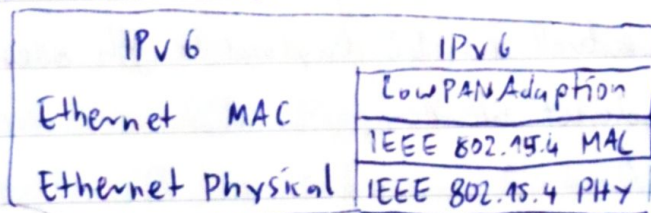 IPv6 IPv6
LowPAN Adaption
Ethernet MAC
IEEE 802.15.4 MAC
Ethernet Physical IEEE 802.15.4 PHY